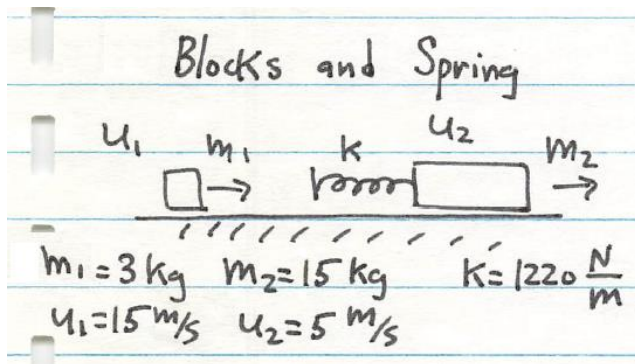 Blocks and Spring
u₁ m₁ k u₂ m₂
m₁=3 kg m₂=15 kg k=1220 N/m
u₁=15 m/s u₂=5 m/s